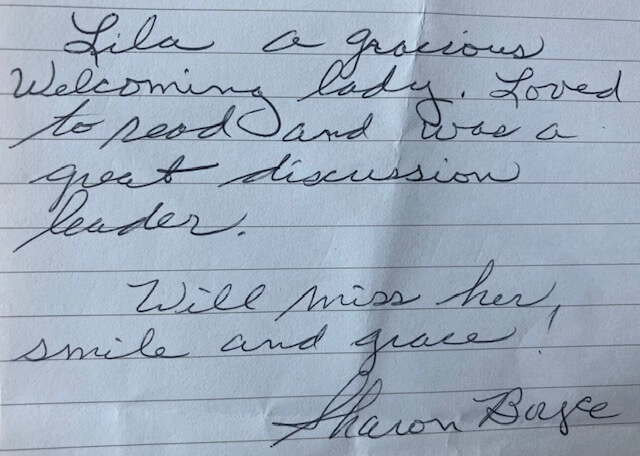 Lila a gracious
Welcoming lady. Loved
to read and was a
great discussion
leader.
Will miss her,
smile and grace!
Sharon